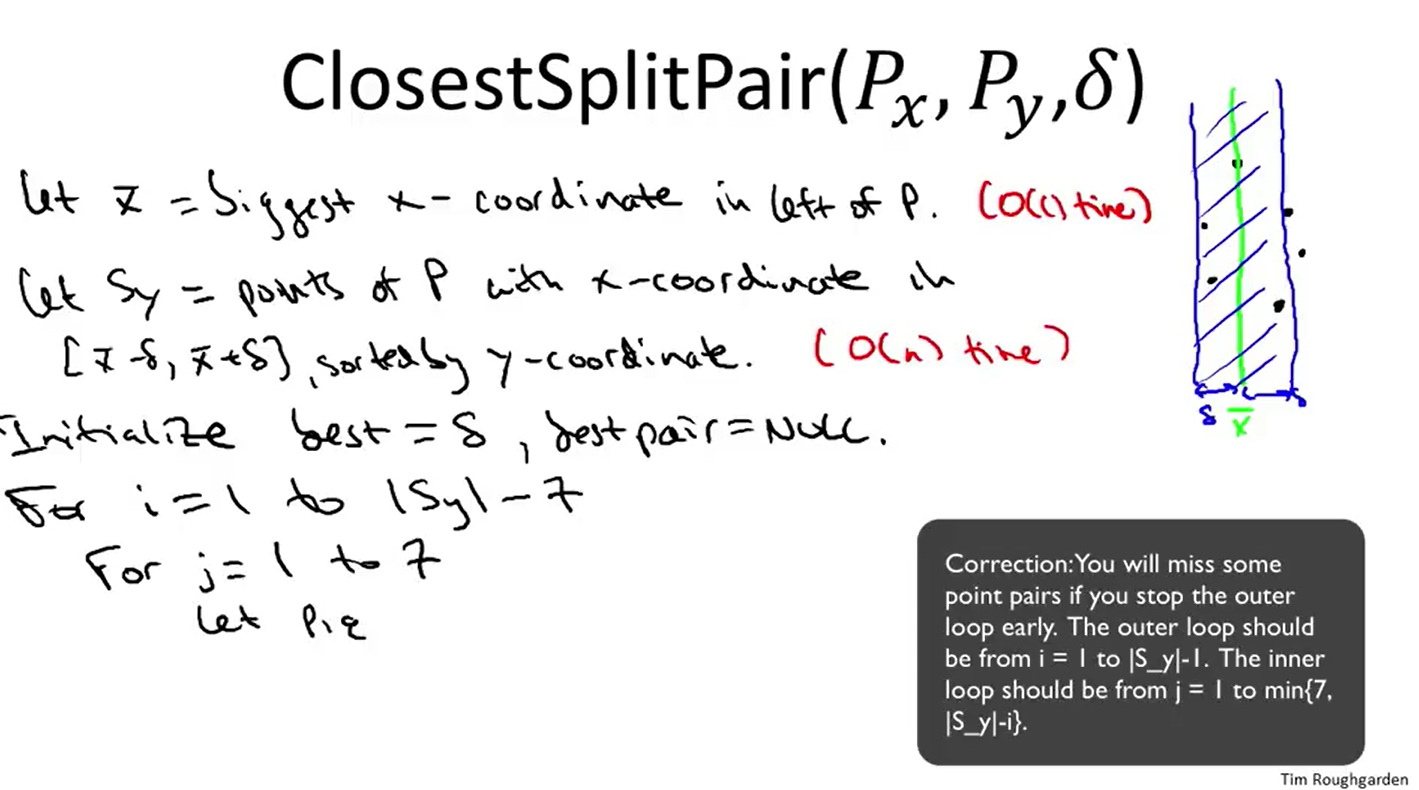 ClosestSplitPair(Pₓ, Pᵧ,δ)
Let x̄ = biggest x-coordinate in left of P. (O(1) time)
Let Sy = points of P with x-coordinate in
[x̄-δ, x̄+δ], sorted by y-coordinate. (O(n) time)
Initialize best = δ, best pair = NULL.
For i = 1 to |Sy| - 7
For j = 1 to 7
let p,q
δ x̄ δ
Correction:You will miss some
point pairs if you stop the outer
loop early. The outer loop should
be from i = 1 to |S_y|-1. The inner
loop should be from j = 1 to min{7,
|S_y|-i}.
Tim Roughgarden